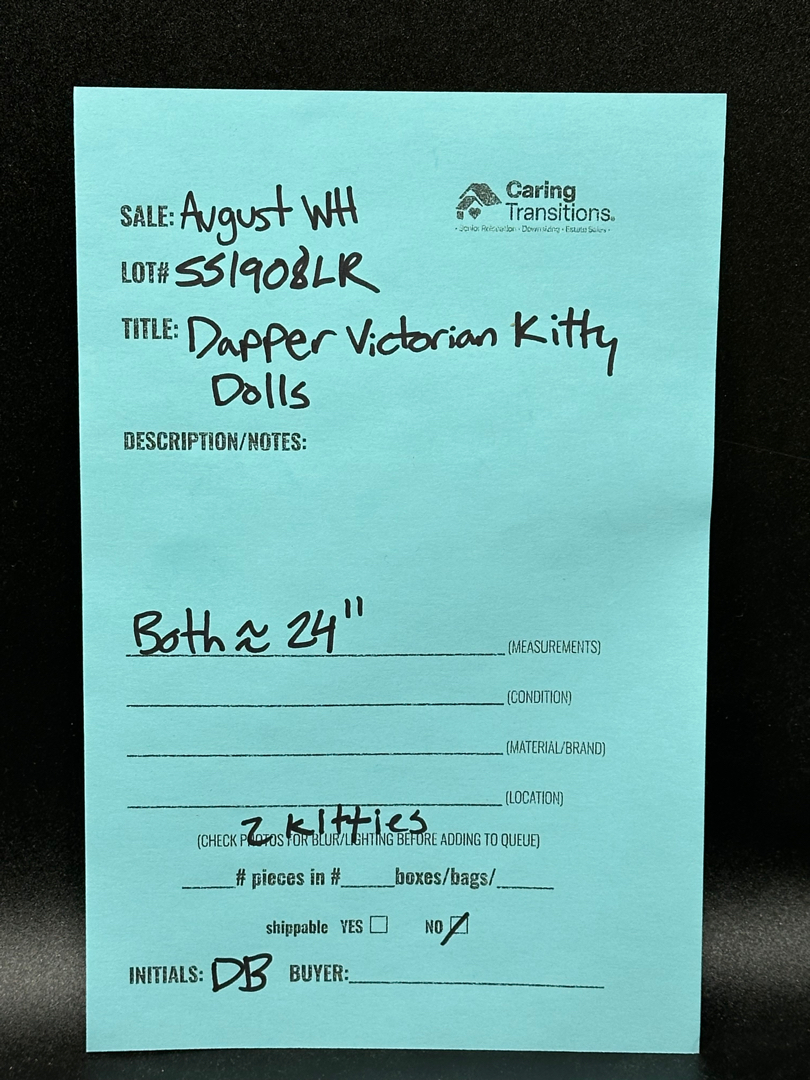 Caring
Transitions®
- Senior Relocation - Downsizing - Estate Sales -
SALE: August WH
LOT# SS1908LR
TITLE: Dapper Victorian Kitty
Dolls
DESCRIPTION/NOTES:
Both ≈ 24" (MEASUREMENTS)
(CONDITION)
(MATERIAL/BRAND)
(LOCATION)
2 kitties
(CHECK PHOTOS FOR BLUR/LIGHTING BEFORE ADDING TO QUEUE)
_____# pieces in #_____boxes/bags/_____
shippable YES ☐ NO ☑
INITIALS: DB BUYER: